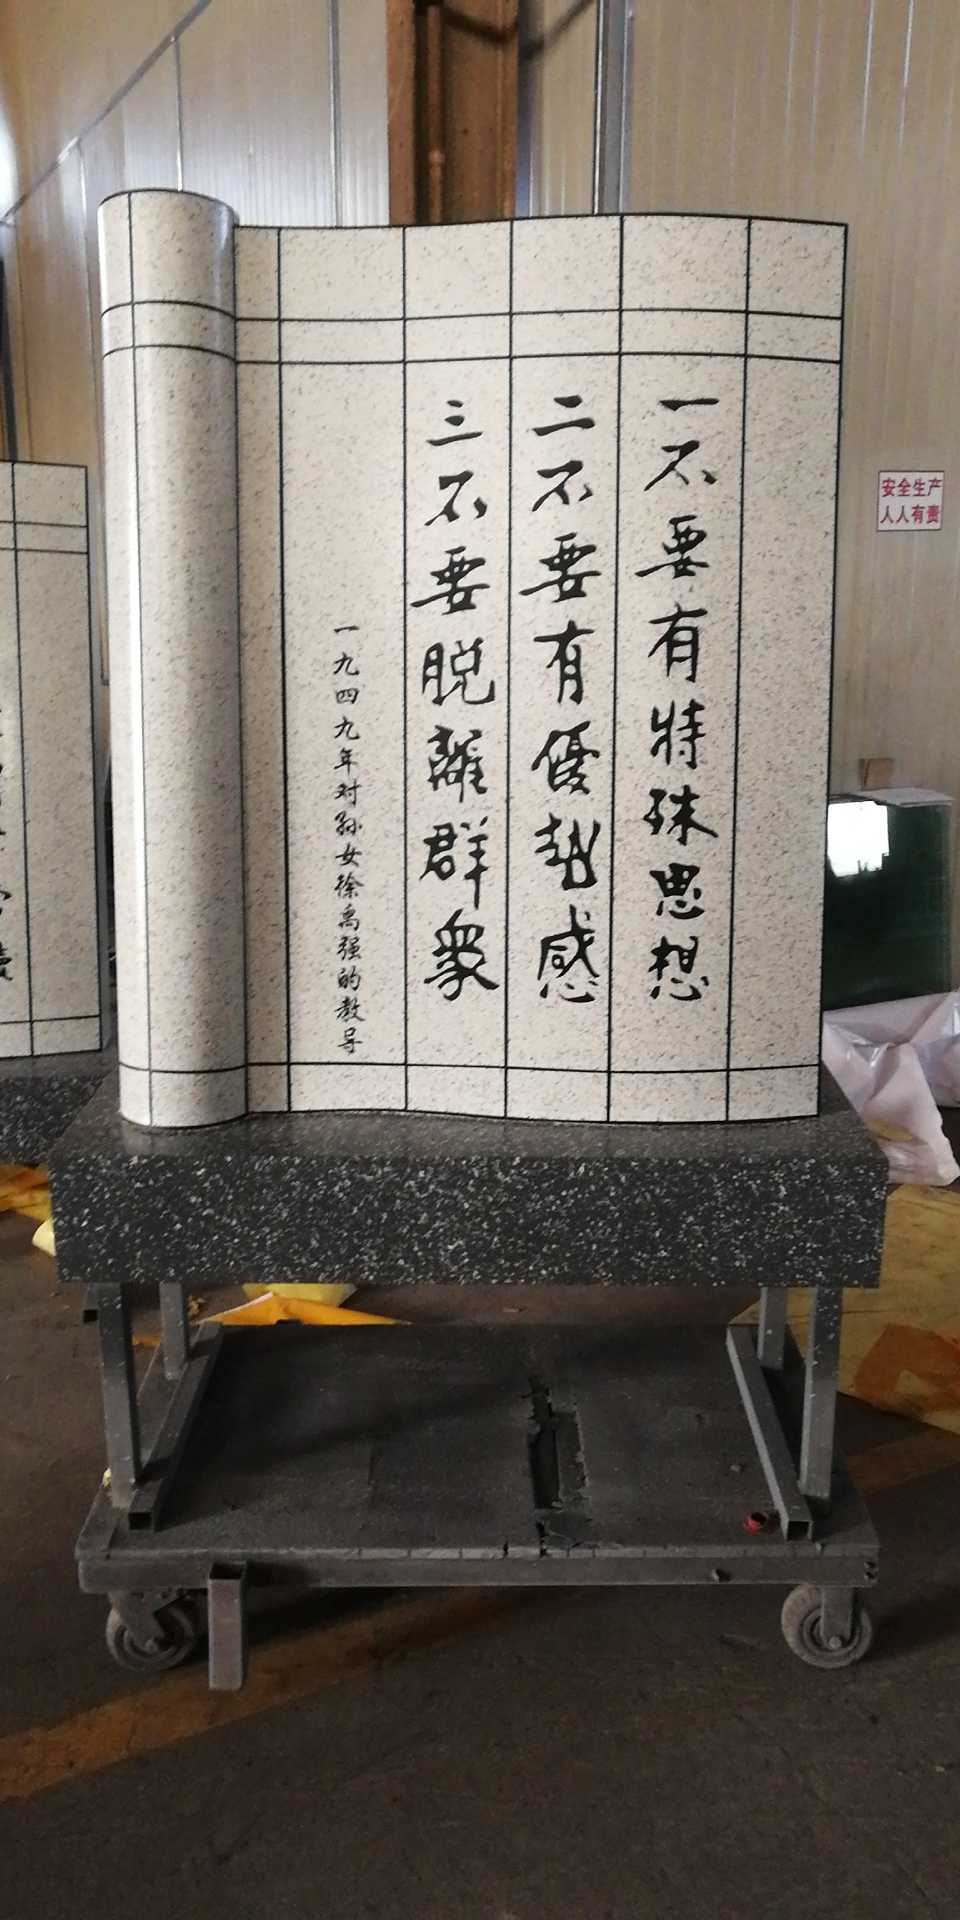 一不要有特殊思想
二不要有優越感
三不要脱離群衆
一九四九年对孙女徐禹强的教导
安全生产
人人有责